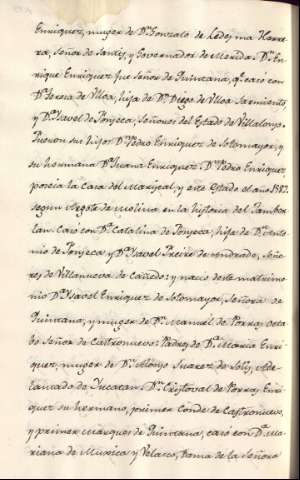 Enriquez, muger de Dn. Gonzalo de Ledesma Herre
ra, Señor de Santis, y Governador de Merida. Dn. En
rique Enriquez fue Señor de Quintana, qe. caso con
Da. Teresa de Ulloa, hija de Dn. Diego de Ulloa Sarmiento,
y Da. Isavel de Fonseca, Señores del Estado de Villalonso.
Fueron sus hijos Dn. Pedro Enriquez de Sotomayor, y
su hermana Da. Juana Enriquez. Dn. Pedro Enriquez,
poseia la Casa del y este Estado el año 1582.
segun Argote de Molina en la historia del Tambor
lan. Caso con Da. Catalina de Fonseca, hija de Dn. Anto
nio de Fonseca, y Da. Isavel Freire de Andrade, Seño
res de Villanueva de Cañedo: y nacio deste matrimo
nio Da. Isavel Enriquez de Sotomayor, Señora de
Quintana, y muger de Dn. Manuel de Porras octa
bo Señor de Castronuevo: Padres de Da. Maria Enri
quez, muger de Dn. Alonso Suarez de Solis, Ade
lantado de Yucatan. Dn. Cristoval de Porras, Enri
quez su hermano, primer Conde de Castronuevo,
y primer Marques de Quintana, caso con Da. Ma
riana de Muxica y Velasco, Dama de la Señora